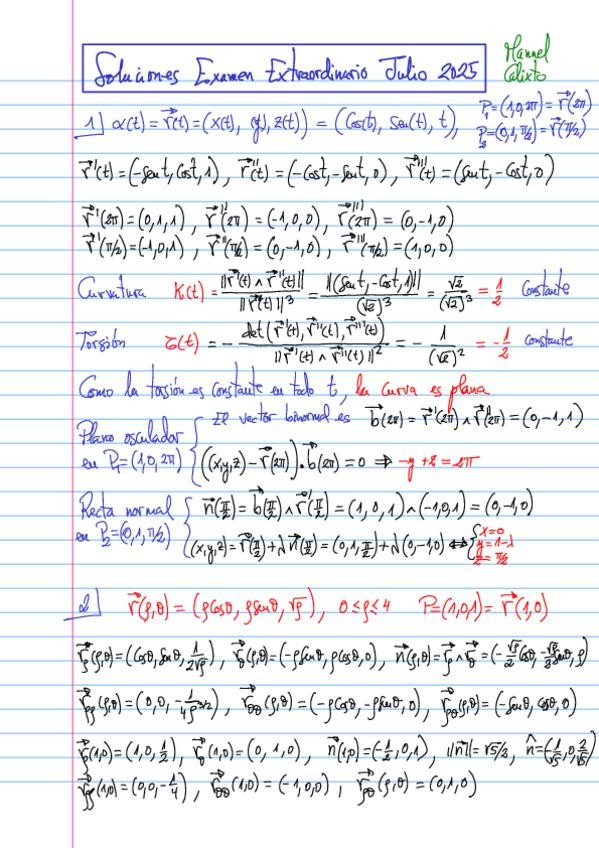 Soluciones Examen Extraordinario Julio 2025
Manuel
Calixto
1] α(t) = r⃗(t) = (x(t), y(t), z(t)) = (Cos(t), Sen(t), t),
P₁=(1,0,2π)=r⃗(2π)
P₂=(0,1,π/2)=r⃗(π/2)
r⃗'(t) = (-Sen t, Cos t, 1), r⃗''(t) = (-Cos t, -Sen t, 0), r⃗'''(t) = (Sen t, -Cos t, 0)
r⃗'(2π) = (0,1,1), r⃗''(2π) = (-1,0,0), r⃗'''(2π) = (0,-1,0)
r⃗'(π/2) = (-1,0,1), r⃗''(π/2) = (0,-1,0), r⃗'''(π/2) = (1,0,0)
Curvatura K(t) = ||r⃗'(t) ∧ r⃗''(t)|| / ||r⃗'(t)||³ = ||(Sen t, -Cos t, 1)|| / (√2)³ = √2/(√2)³ = 1/2 Constante
Torsión τ(t) = - det(r⃗'(t), r⃗''(t), r⃗'''(t)) / ||r⃗'(t) ∧ r⃗''(t)||² = - 1/(√2)² = -1/2 constante
Como la torsión es constante en todo t, la curva es plana
Plano osculador en P₁=(1,0,2π) { El vector binormal es b⃗(2π) = r⃗'(2π) ∧ r⃗''(2π) = (0,-1,1)
((x,y,z) - r⃗(2π)) · b⃗(2π) = 0 ⇒ -y + z = 2π
Recta normal en P₂=(0,1,π/2) { n⃗(π/2) = b⃗(π/2) ∧ r⃗'(π/2) = (1,0,1) ∧ (-1,0,1) = (0,-1,0)
(x,y,z) = r⃗(π/2) + λ n⃗(π/2) = (0,1,π/2) + λ(0,-1,0) ⇔ { x=0 y=1-λ z=π/2
2] r⃗(ρ,θ) = (ρ Cosθ, ρ Senθ, √ρ), 0≤ρ≤4 P=(1,0,1) = r⃗(1,0)
r⃗ρ(ρ,θ) = (Cosθ, Senθ, 1/(2√ρ)), r⃗θ(ρ,θ) = (-ρ Senθ, ρ Cosθ, 0), n⃗(ρ,θ) = r⃗ρ ∧ r⃗θ = (-√ρ/2 Cosθ, -√ρ/2 Senθ, ρ)
r⃗ρρ(ρ,θ) = (0,0,-1/4 ρ^(-3/2)), r⃗θθ(ρ,θ) = (-ρ Cosθ, -ρ Senθ, 0), r⃗ρθ(ρ,θ) = (-Senθ, Cosθ, 0)
r⃗ρ(1,0) = (1,0,1/2), r⃗θ(1,0) = (0,1,0), n⃗(1,0) = (-1/2,0,1), ||n⃗|| = √5/2, n̂ = (-1/√5, 0, 2/√5)
r⃗ρρ(1,0) = (0,0,-1/4), r⃗θθ(1,0) = (-1,0,0), r⃗ρθ(ρ,θ) = (0,1,0)